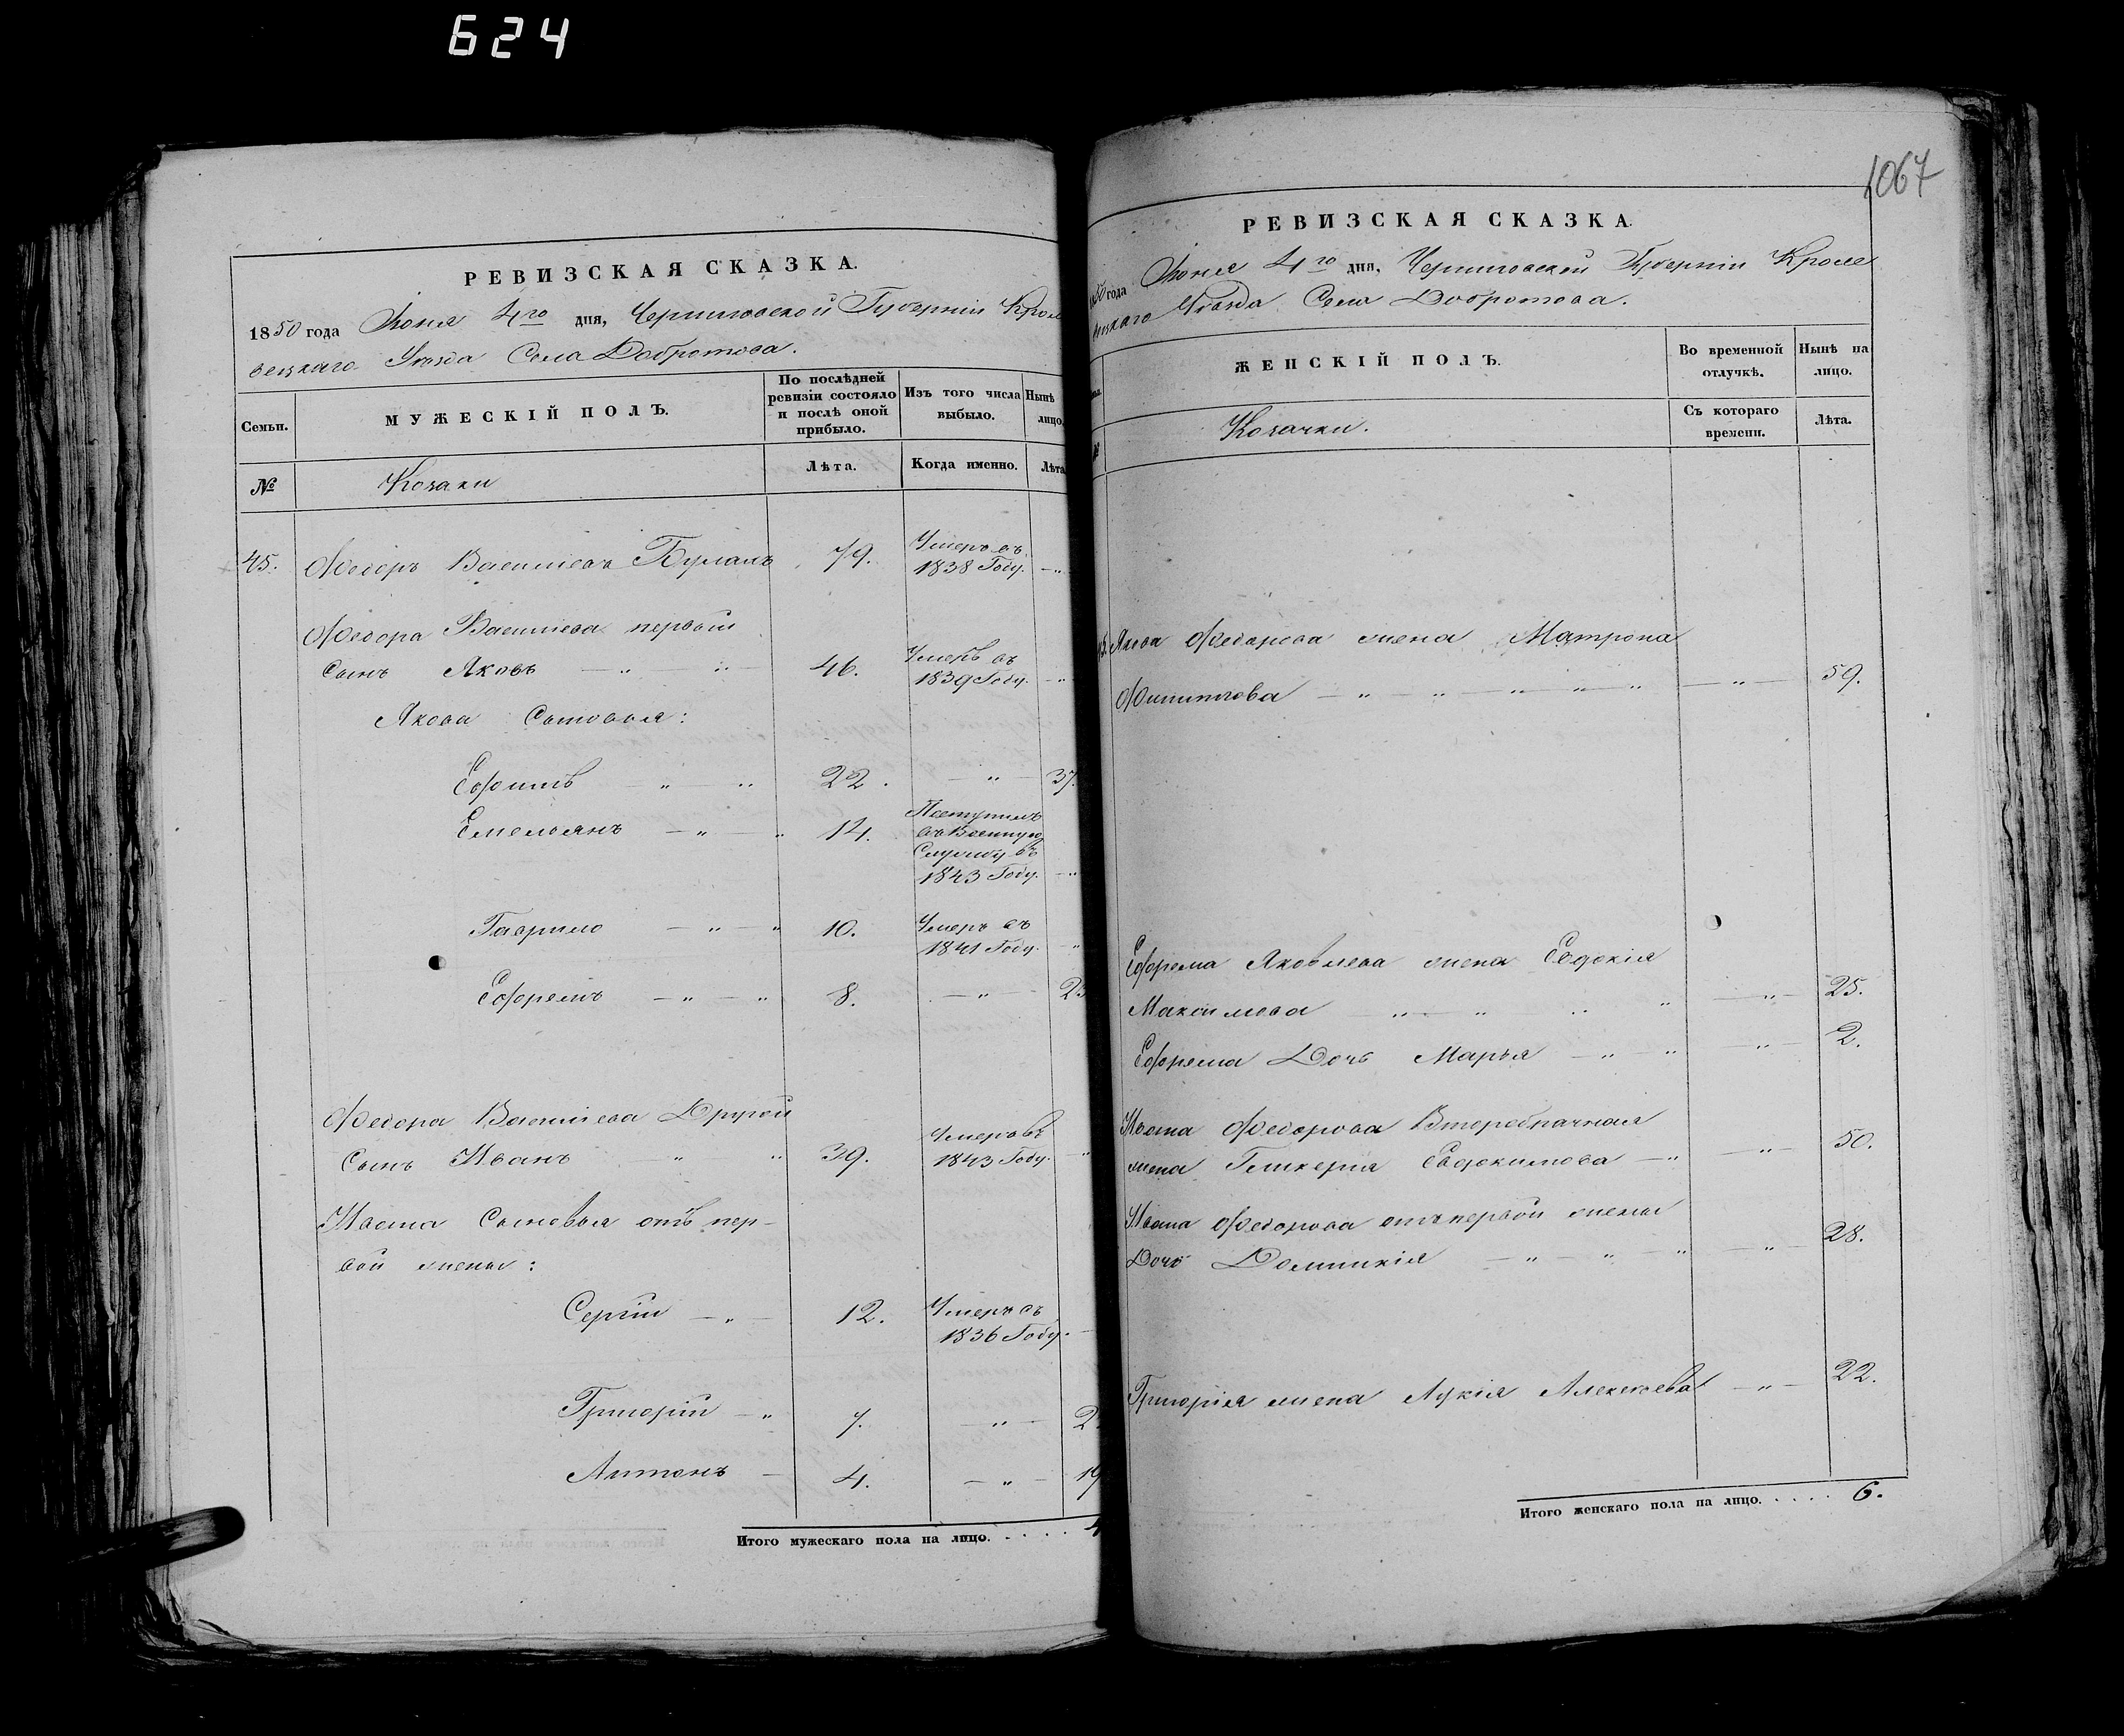 624
РЕВИЗСКАЯ СКАЗКА.
1850 года Іюня 4го дня, Черниговской Губерніи Кроле
вецкаго Уѣзда Села Добротова.
Семьи.
МУЖЕСКІЙ ПОЛЪ.
По послѣдней
ревизіи состояло
и послѣ оной
прибыло.
Изъ того числа
выбыло.
Нынѣ
лицо.
№
Козаки
Лѣта.
Когда именно.
Лѣта
45. Федоръ Васильевъ 79. Умеръ въ
1838 Году. — „
Федора Васильева первый
Сынъ Яковъ — „ „ — 46. Умеръ въ
1839 Году. — „
Якова Сыновья:
Ефимъ — „ — „ 22. — „ — 37.
Емельянъ — „ — „ 14. Поступилъ
въ Военную
Службу въ
1843 Году. — „
Гаврило — „ — „ 10. Умеръ въ
1841 Году. — „
Ефремъ — „ — „ 8. — „ — 23
Федора Васильева Другой
Сынъ Иванъ „ „ 39. Умеръ въ
1843 Году. „
Ивана Сыновья отъ пер-
вой жены:
Сергій — „ — 12. Умеръ въ
1836 Году. —
Григорій — „ 7. — „ — 2
Антонъ — 4. — „ — 19
Итого мужескаго пола на лицо. . . . . 4
1067
РЕВИЗСКАЯ СКАЗКА.
1850 года Іюня 4го дня, Черниговской Губерніи Кроле
вецкаго Уѣзда Села Добротова.
ЖЕНСКІЙ ПОЛЪ.
Во временной
отлучкѣ.
Нынѣ на
лицо.
№
Козачки.
Съ котораго
времени.
Лѣта.
45. Якова Федорова жена Матрона
Филиппова — „ — „ „ „ „ — „ — 59.
Ефрема Яковлева жена Евдокія
Максимова — „ — „ „ „ — „ — 25.
Ефрема Дочь Марья — „ — „ — „ — 2.
Ивана Федорова Второбрачная
жена Гликерія Евдокимова — „ — „ — 50.
Ивана Федорова отъ первой жены
Дочь Домникія — „ — „ — „ — „ — 28.
Григорія жена Лукія Алексѣева — „ — 22.
Итого женскаго пола на лицо. . . . . 6.